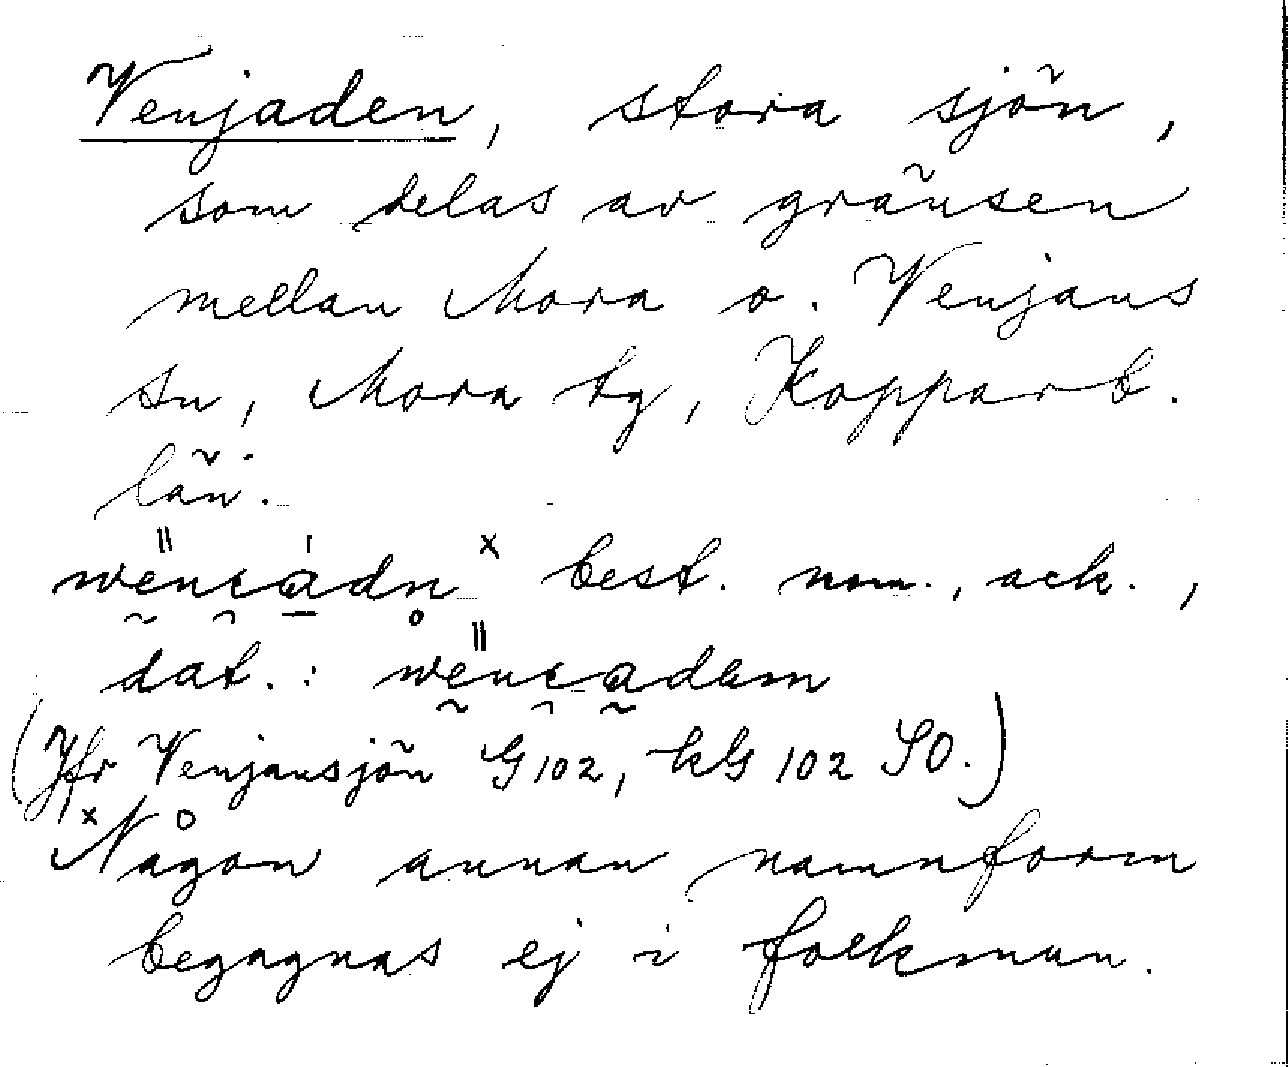 Venjaden, stora sjön,
som delas av gränsen
mellan Mora o. Venjans
sn, Mora tg, Kopparb.
län.
best. nom., ack.,
dat.:
(Jfr Venjansjön G 102, kG 102 SO.)
x Någon annan namnform
begagnas ej i folkmun.